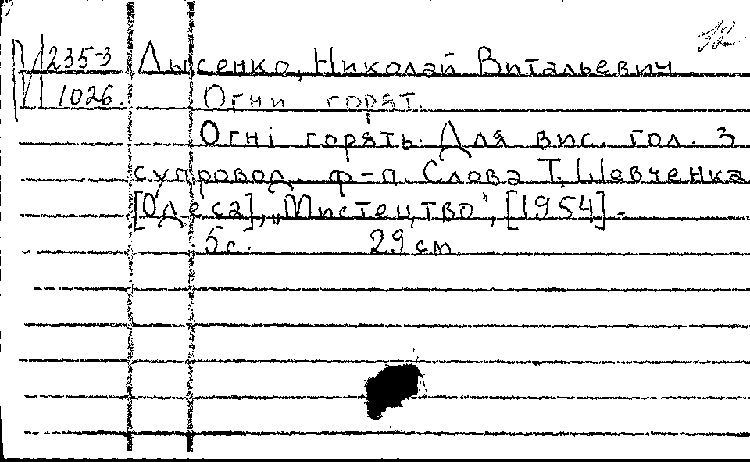 М 235-3 Лысенко, Николай Витальевич
1026. Огни горят.
Огні горять. Для вис. гол. з
супровод. ф-п. Слова Т. Шевченка
[Одеса], „Мистецтво", [1954].
5 с. 29 см